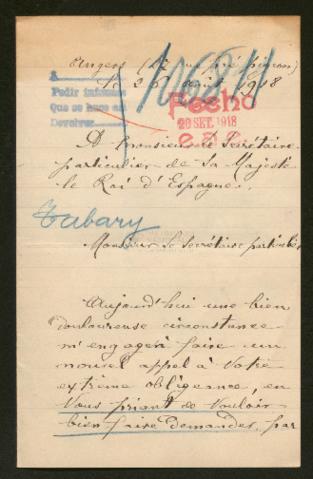 Angers (12 rue pré pigeon)
le 2 août 1918
106811
A
Pedir informe
Que se hace en
Devolver
Fecho
20 SET. 1918
A Monsieur le Secrétaire
particulier de Sa Majesté
le Roi d'Espagne.
Tabary
Monsieur le Secrétaire particulier
Aujourd'hui une bien
douloureuse circonstance
m'engage à faire un
nouvel appel à votre
extrême obligeance, en
vous priant de vouloir
bien faire demander, par